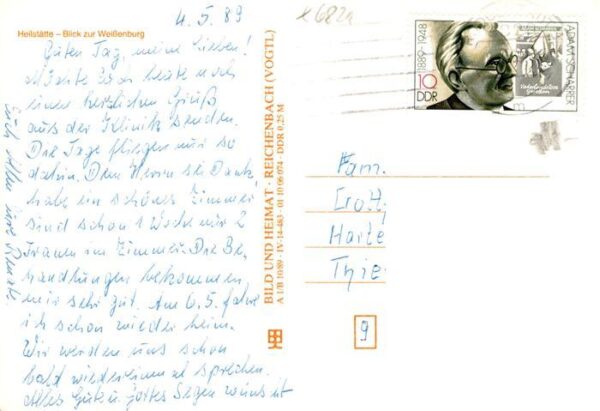 4.5.89
x 682a
Heilstätte – Blick zur Weißenburg
Guten Tag, meine Lieben!
Möchte Euch heute noch
einen herzlichen Gruß
aus der Klinik senden.
Die Tage fliegen nur so
dahin. Dem Herrn sei Dank,
habe ein schönes Zimmer
sind schon 1 Woche nur 2
Frauen im Zimmer. Die Be-
handlungen bekommen
mir sehr gut. Am 6.5. fahre
ich schon wieder heim.
Wir werden uns schon
bald wiedereinmal sprechen.
Alles Gute u. Gottes Segen wünscht
Euch Allen Eure
BILD UND HEIMAT · REICHENBACH (VOGTL)
A 1/B 10/89 · IV-14-483 · 01 10 66 074 · DDR 0,25 M
1889-1948
10
DDR
ADAM SCHARRER
Vaterlandslose
Gesellen
Fam.
Harte
Thie
9